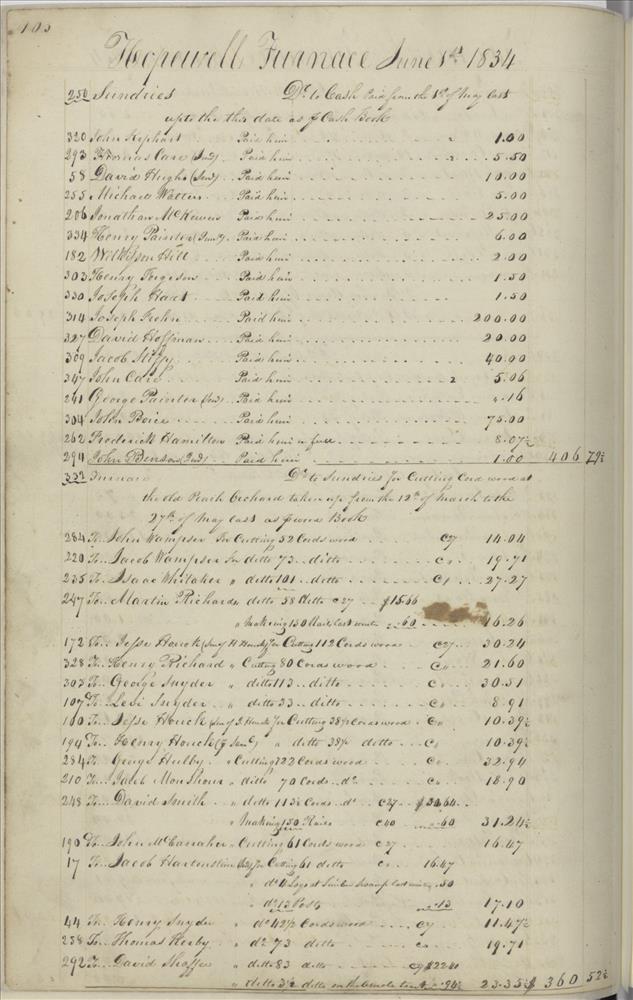 103
Hopewell Furnace June 1st 1834
250 Sundries Dr to Cash Paid from the 1st of May last
upto the this date as p Cash Book
320 John Hephart Paid him 1.00
293 Thomas Care (Jnd) Paid him 5.50
58 David Hughs (Send) Paid him 10.00
255 Michael Watters Paid him 5.00
206 Jonathan McKewen Paid him 25.00
334 Henry Painter (Junr) Paid him 6.00
182 Wilkison Hill Paid him 2.00
303 Henry Ferguson Paid him 1.50
330 Joseph Hart Paid him 1.50
314 Joseph Paid him 200.00
327 David Hoffman Paid him 20.00
309 Jacob Paid him 40.00
347 John Care Paid him 5.06
241 George Painter (Snd) Paid him .16
304 John Boice Paid him 75.00
262 Frederick Hamilton Paid him in full 8.07½
294 John Benson (Jnd) Paid him 1.00 406 79½
332 Furnace Dr to Sundries for Cutting Cord wood at
the old Peach Orchard taken up from the 12th of March to the
27th of May last as p wood Book
284 To John Wampser for Cutting 52 Cords wood C27 14.04
220 To Jacob Wampser for ditto 73 ditto C" 19.71
235 To Isaac Whitaker " ditto 101 ditto C" 27.27
247 To Martin Richards ditto 58 ditto C27 $15.66
" making 150 Rails last winter .60 16.26
172 To Jesse Houck (Son of H Houck) for Cutting 112 Cords wood C27 30.24
328 To Henry Richard " Cutting 80 Cords wood C" 21.60
303 To George Snyder " ditto 113 ditto C" 30.51
107 To Levi Snyder " ditto 33 ditto C" 8.91
160 To Jesse Houck (Son of J. Houck) for Cutting 38½ Cords wood C" 10.39½
194 To Henry Houck " ditto 38½ ditto C" 10.39½
284 To George Hulby " Cutting 122 Cords wood C" 32.94
210 To Jacob Monshour " ditto 70 Cords do C" 18.90
248 To David Smith " ditto 113½ Cords do C27 $30.64
" making 150 Rails C40 .60 31.24½
190 To John McCanaher " Cutting 61 Cords wood C27 16.47
17 To Jacob Hartenstine for Cutting 61 ditto C" 16.47
" do 4 Logs at Swamp last winter .50
" do 13 Posts .13 17.10
44 To Henry Snyder " do 42½ Cords wood C27 11.47½
238 To Thomas Kerby " do 73 ditto C" 19.71
292 To David Shaffer " ditto 83 ditto C27 $22.41
" ditto 3½ ditto on the .94½ 23.35½ $ 360 52½